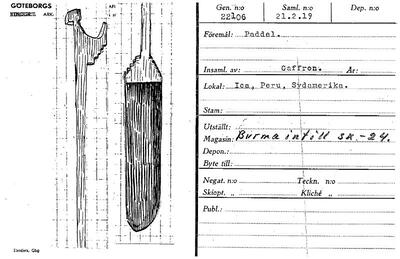 GÖTEBORGS
ETNOGRFT. ARK.
Gen. n:o
22106
Saml. n:o
21.2.19
Dep. n:o
Föremål: Paddel.
Insaml. av: Gaffron. År:
Lokal: Ica, Peru, Sydamerika.
Stam:
Utställt:
Magasin: Burma intill sk-24.
Depon.:
Byte till:
Negat. n:o Teckn. n:o
Skiopt. „ Kliché „
Publ.: